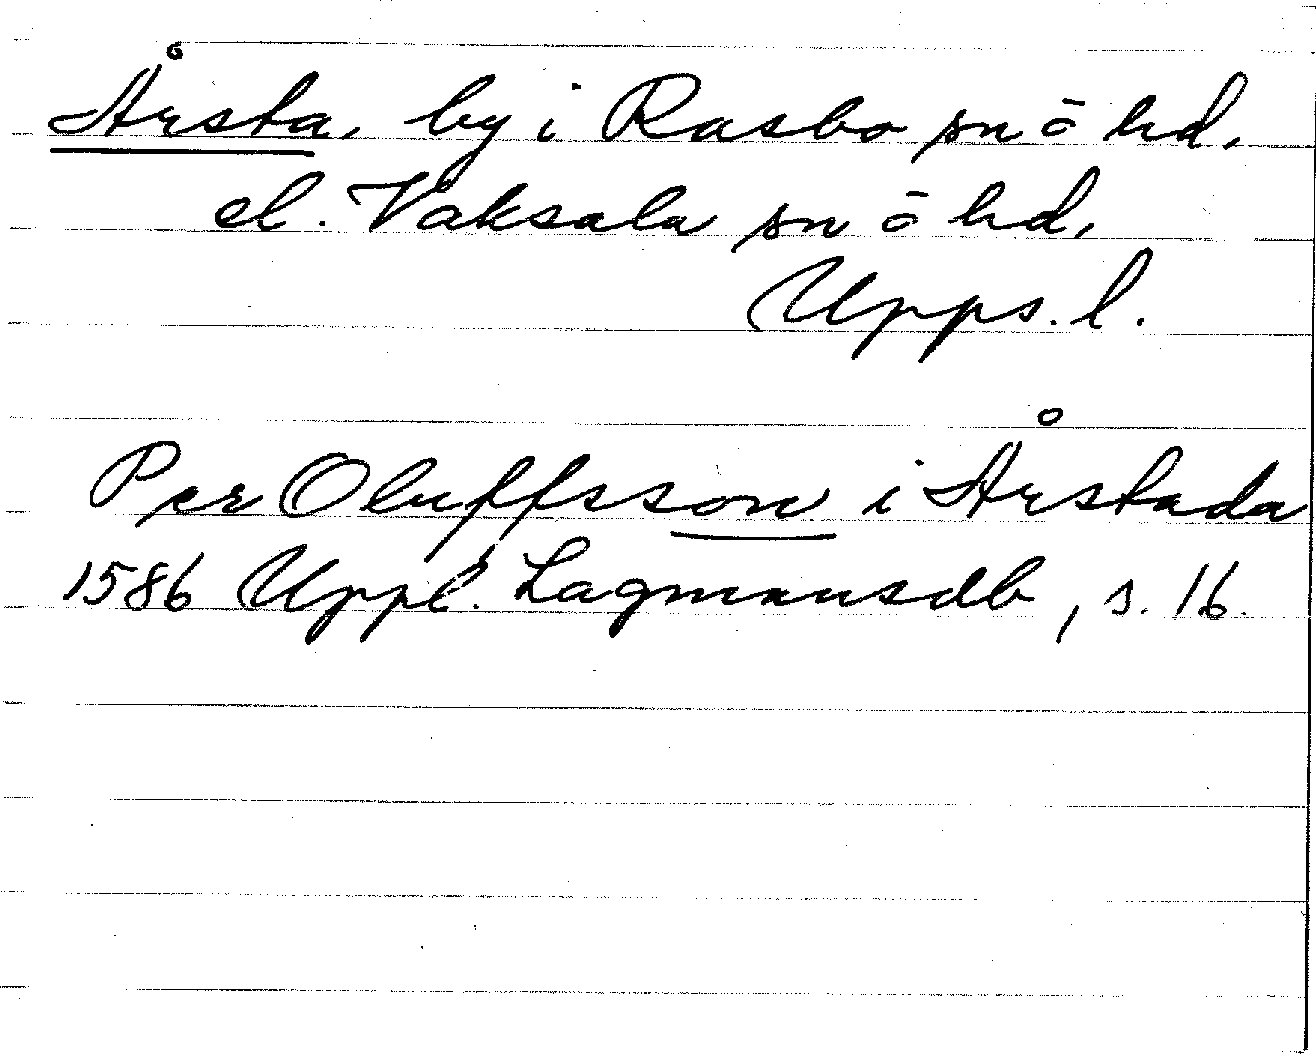 Årsta, by i Rasbo sn ō hd,
el. Vaksala sn ō hd,
Upps. l.
Per Oluffsson i Årstada
1586 Uppl. Lagmansdb, s. 16.